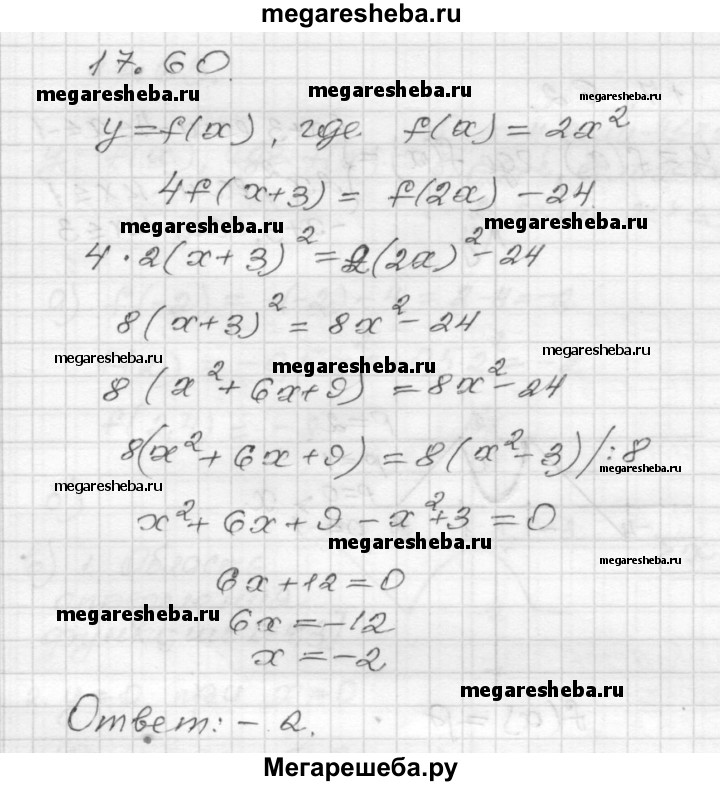 megaresheba.ru
17.60.
megaresheba.ru megaresheba.ru megaresheba.ru
y = f(x), где f(x) = 2x²
4f(x+3) = f(2x) - 24.
megaresheba.ru megaresheba.ru
4 · 2(x+3)² = 2(2x)² - 24
8(x+3)² = 8x² - 24
megaresheba.ru megaresheba.ru megaresheba.ru
8(x² + 6x + 9) = 8x² - 24
8(x² + 6x + 9) = 8(x² - 3) /:8
megaresheba.ru megaresheba.ru
x² + 6x + 9 - x² + 3 = 0
megaresheba.ru megaresheba.ru
6x + 12 = 0
megaresheba.ru
6x = -12
x = -2
megaresheba.ru
Ответ: -2.
Мегарешеба.ру